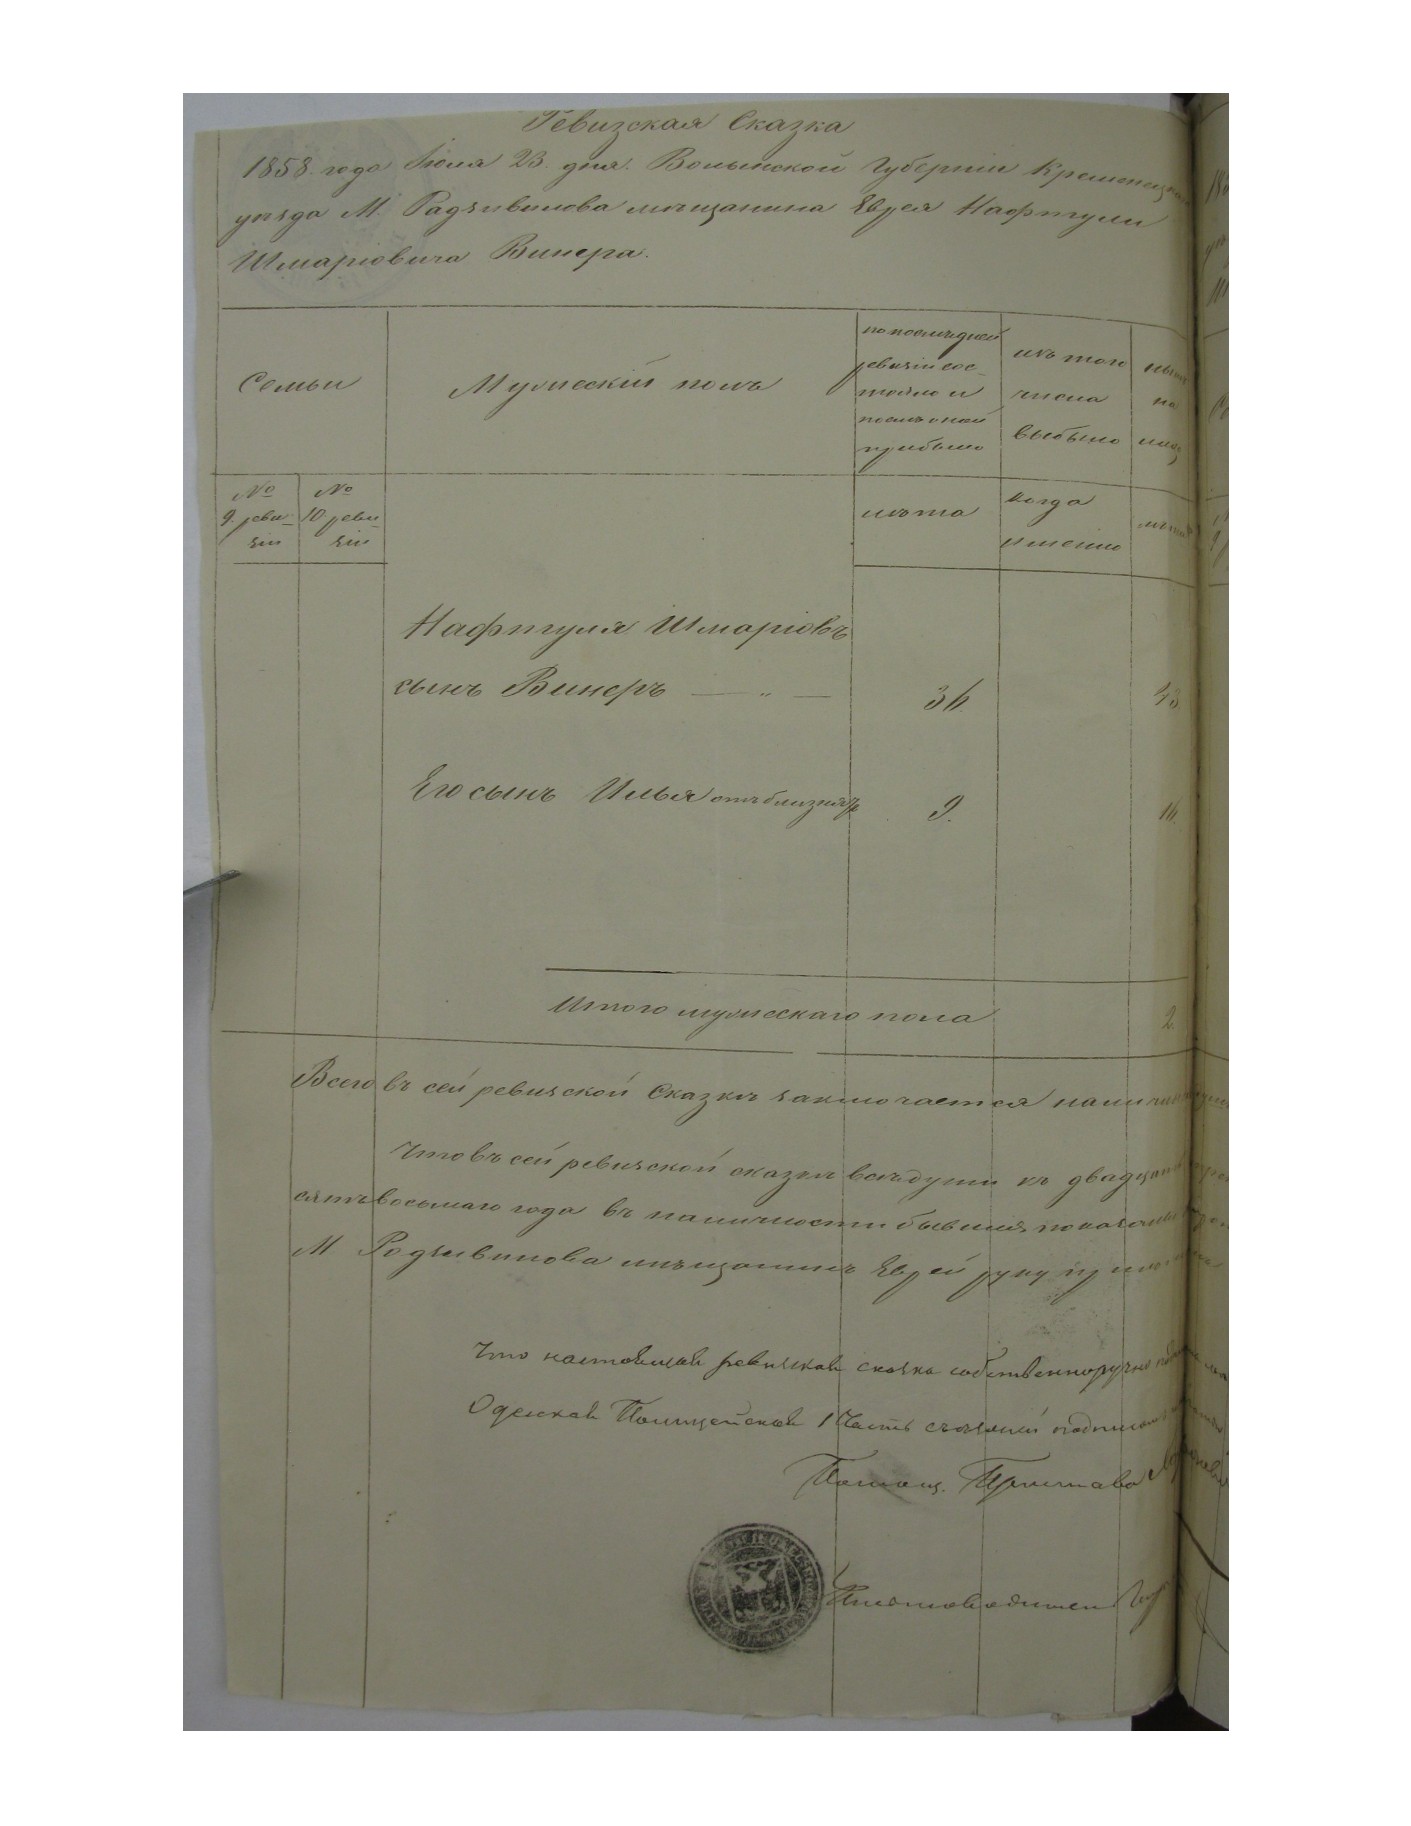 Ревизская Сказка
1858. года Июля 23. дня. Волынской Губерніи Кременецкаго
уѣзда М. Радзивилова мѣщанина Еврея Нафтули
Шмаріовича Винера.
Семьи
Мужескій полъ
по послѣдней
ревизіи сос-
тояло и
послѣ оной
прибыло
изъ того
числа
выбыло
нынѣ
на
лицо
№
9. реви-
зіи
№
10 реви-
зіи
лѣта
когда
именно
лѣта
Нафтуля Шмаріовъ
сынъ Винеръ — " —
36.
43
Его сынъ Илья отъ близнятъ
9.
16.
Итого мужескаго пола
2
Всего въ сей ревизской Сказкѣ заключается
Что въ сей ревизской сказкѣ всѣ души къ
сятъ восьмаго года въ наличности бывшія показаны
М Родзивилова мѣщанинъ Еврей руку
Что настоящая ревизская сказка собственноручно
Одесская Полицейская 1 Часть съ казенной
Помощ. Пристава
Письмоводитель